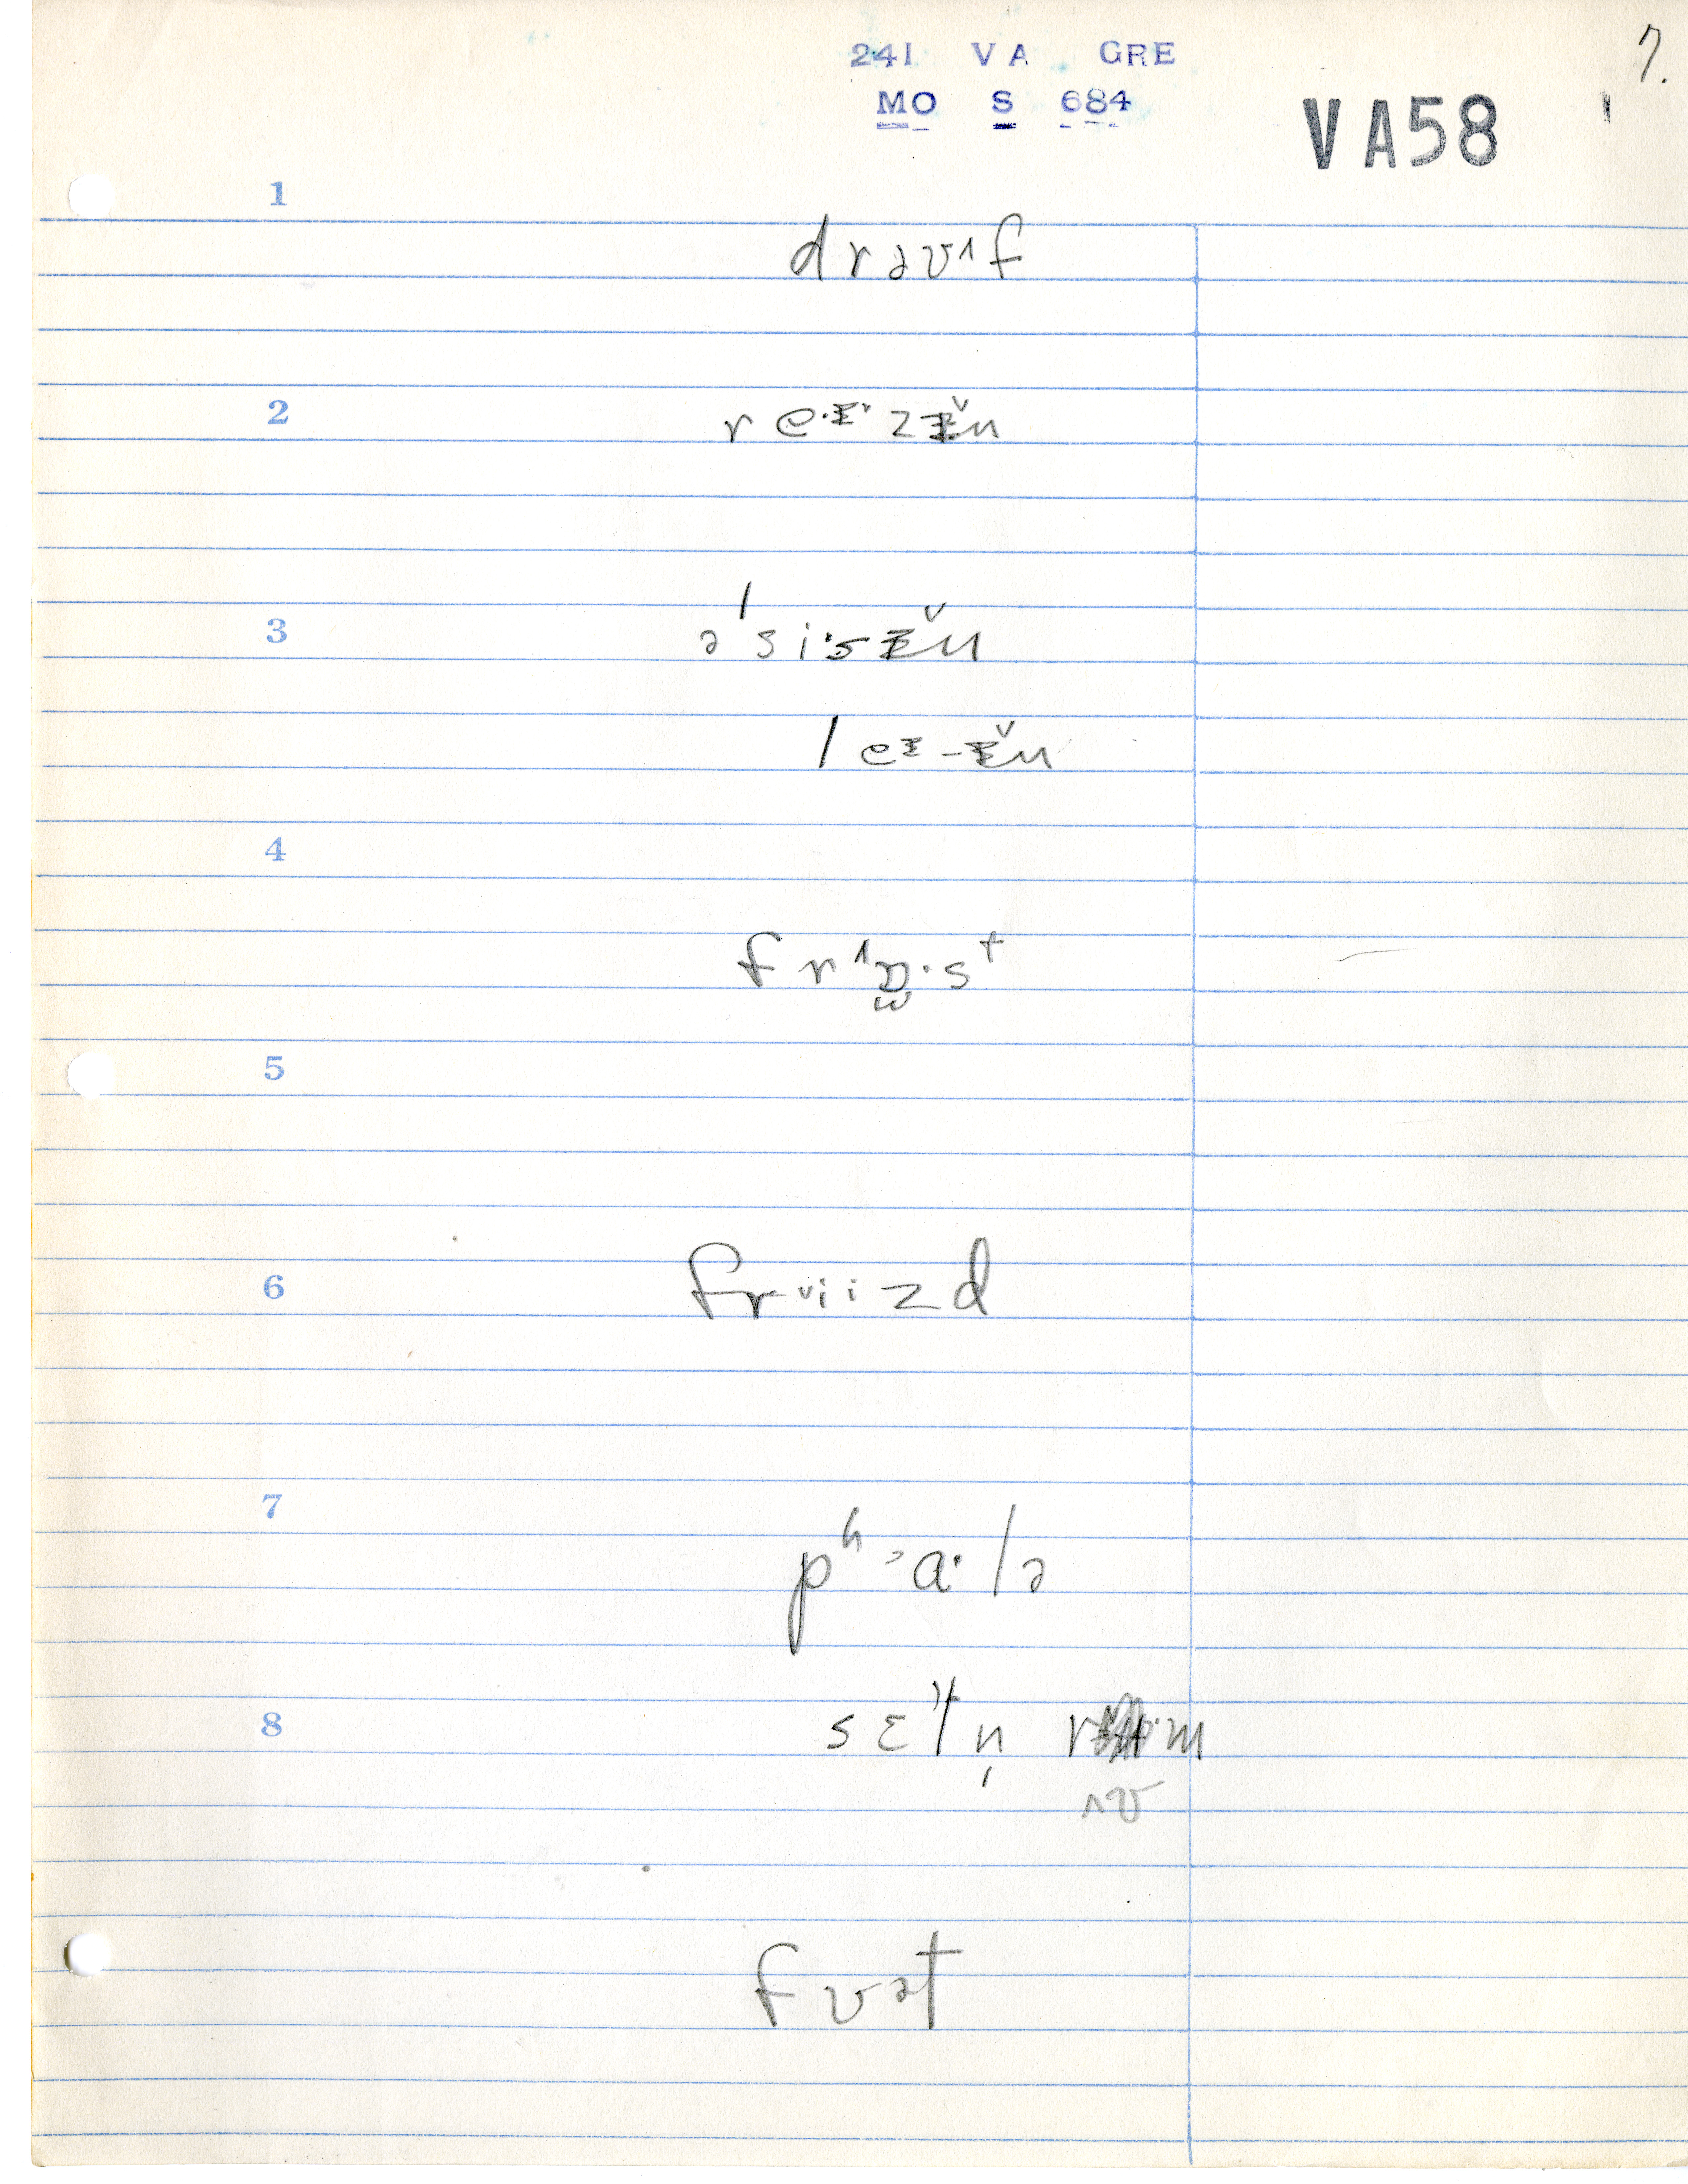 241 VA GRE
7.
MO S 684
VA58
1
drəʊ˄f
2
r e·ɪ˅ z ɪ̌n
3
əˈsi·sɪ̌n
leɪ-ɪ̌n
4
fr˄ɒ̫·sᵗ
5
6
fr˅iizd
7
pʰ˃a·lə
8
sɛtn̩ r m
˄ʊ
fʊət